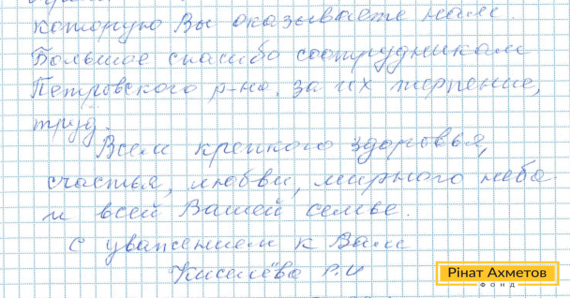 которую Вы оказываете нам.
Большое спасибо сотрудникам
Петровского р-на, за их терпение,
труд.
Всем крепкого здоровья,
счастья, любви, мирного неба
и всей Вашей семье.
С уважением к Вам
Киселёва Р.И
Рінат Ахметов
ФОНД